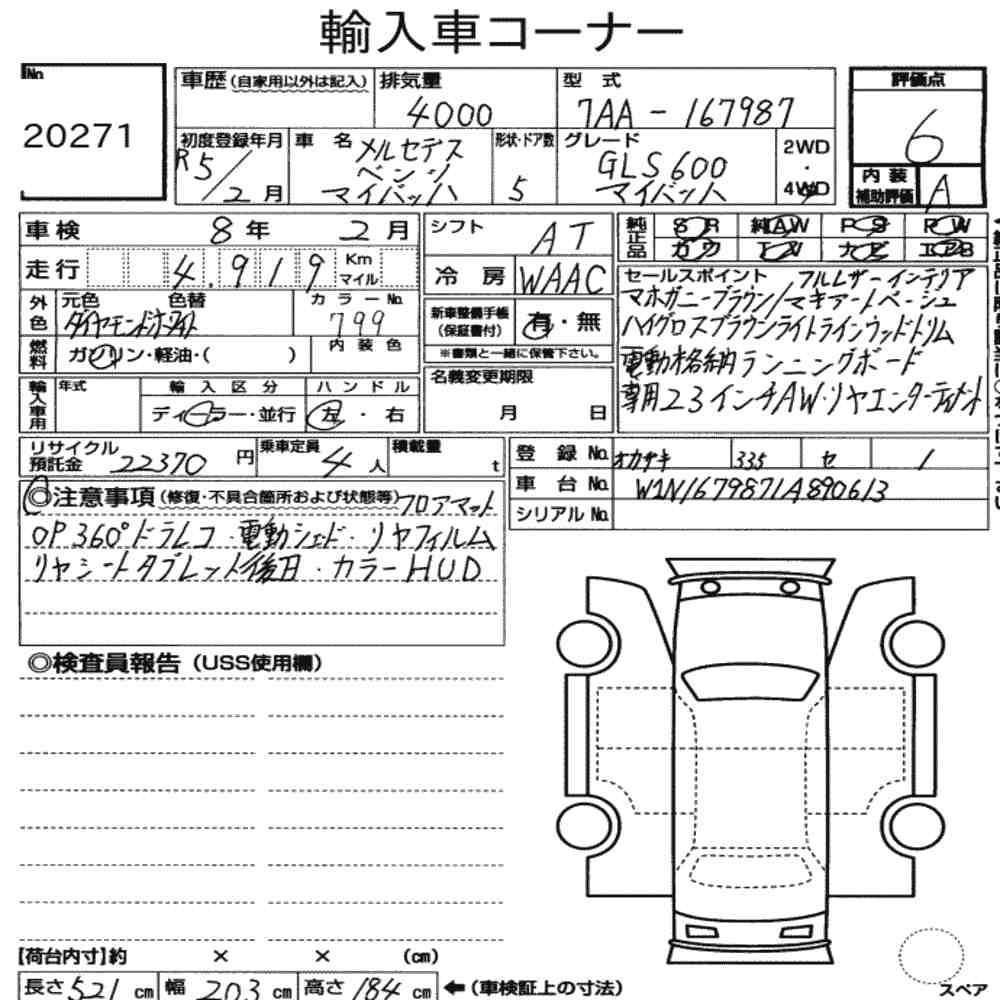 輸入車コーナー
No.
20271
車歴(自家用以外は記入)
排気量
4000
型 式
7AA-167987
評価点
6
初度登録年月
R5/2月
車 名
メルセデス
ベンツ
マイバッハ
形状・ドア数
5
グレード
GLS600
マイバッハ
2WD
・
4WD
内装
補助評価
A
車検
8年 2月
シフト
AT
純正品
SR 純AW PS PW
カワ TV ナビ エアB
走行
4,919
Km
マイル
冷 房
WAAC
セールスポイント フルレザーインテリア
マホガニーブラウン/マキアートベージュ
ハイグロスブラウンライトラインウッドトリム
電動格納ランニングボード
専用23インチAW・リヤエンターテイメント
外色
元色 色替
ダイヤモンドホワイト
カラーNo.
799
新車整備手帳
(保証書付)
有・無
※書類と一緒に保管下さい。
燃料
ガソリン・軽油・( )
内装色
名義変更期限
月 日
輸入車用
年式
輸入区分
ディーラー・並行
ハンドル
左・右
リサイクル
預託金
22370円
乗車定員
4人
積載量
t
登 録 No.
オカザキ 335 セ 1
車 台 No.
W1N1679871A890613
シリアルNo.
◎注意事項(修復・不具合箇所および状態等)フロアマット
OP360°ドラレコ・電動シェード・リヤフィルム
リヤシートタブレット後日・カラーHUD
◎検査員報告(USS使用欄)
【荷台内寸】約 × × (cm)
長さ521cm 幅203cm 高さ184cm ←(車検証上の寸法)
スペア